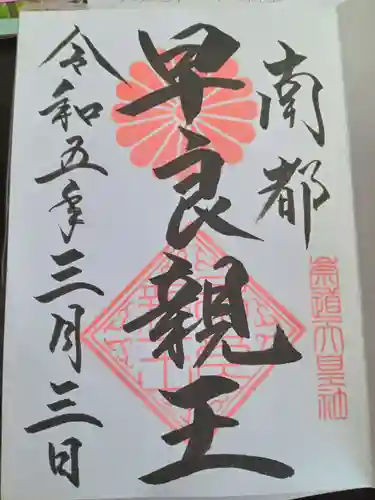 南都
早良親王
令和五年三月三日
崇道天皇社